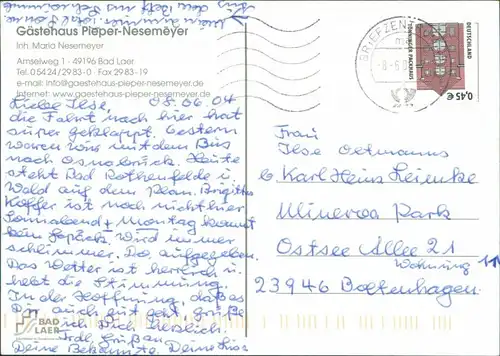 Gästehaus Pieper-Nesemeyer
Inh. Maria Nesemeyer
Amselweg 1 - 49196 Bad Laer
Tel. 0 54 24 / 29 83-0 · Fax 29 83-19
e-mail: info@gaestehaus-pieper-nesemeyer.de
Internet: www.gaestehaus-pieper-nesemeyer.de
Liebe Ilse, 08.06.04
die Fahrt nach hier hat
super geklappt. Gestern
waren wir mit dem Bus
nach Osnabrück. Heute
steht Bad Rothenfelde u.
Wald auf dem Plan. Brigittes
Koffer ist noch nicht hier
Sonnabend + Montag kommt
kein Gepäck. Wird immer
schlimmer. Do. aufgegeben.
Das Wetter ist herrlich u.
hebt die Stimmung.
In der Hoffnung, daß es
Dir auch gut geht, grüße
ich Dich herzlich!
Frdl. Grüße an
Deine Bekannte. Deine
BAD
LAER
BRIEFZEN
DEUTSCHLAND
TÖNNINGER PACKHAUS
0,45 €
Frau
Ilse Oltmanns
b. Karl Heinz
Minerva Park
Ostsee Allee 21
Wohnung
23946 Boltenhagen